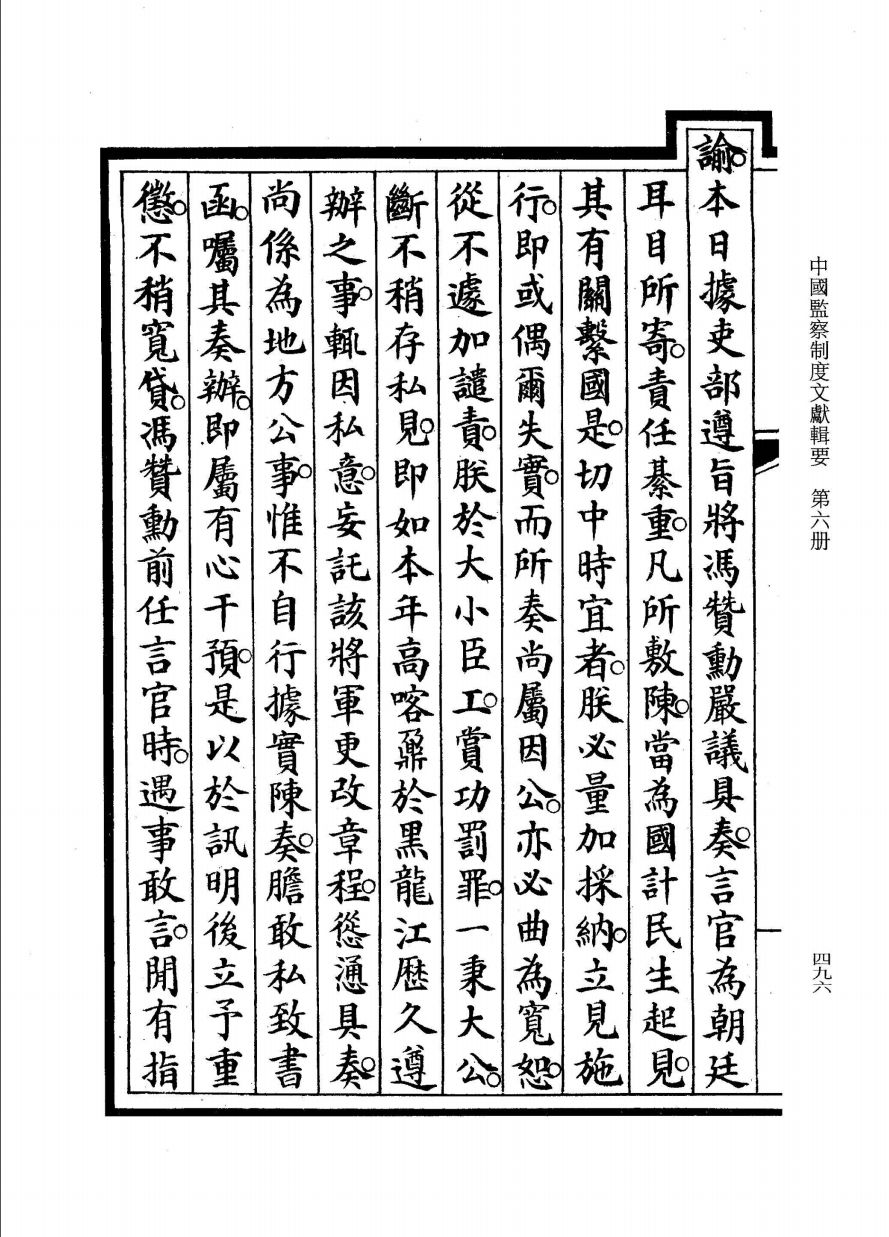 中國監察制度文獻輯要　第六册
四九六
諭。本日據吏部遵旨將馮贊勳嚴議具奏。言官為朝廷
耳目所寄。責任綦重。凡所敷陳。當為國計民生起見。
其有關繫國是。切中時宜者。朕必量加採納。立見施
行。即或偶爾失實。而所奏尚屬因公。亦必曲為寬恕。
從不遽加譴責。朕於大小臣工。賞功罰罪。一秉大公。
斷不稍存私見。即如本年高喀鼐於黑龍江歷久遵
辦之事。輒因私意。妄託該將軍更改章程。慫慂具奏。
尚係為地方公事。惟不自行據實陳奏。膽敢私致書
函。囑其奏辦。即屬有心干預。是以於訊明後立予重
懲。不稍寬貸。馮贊勳前任言官時。遇事敢言。閒有指